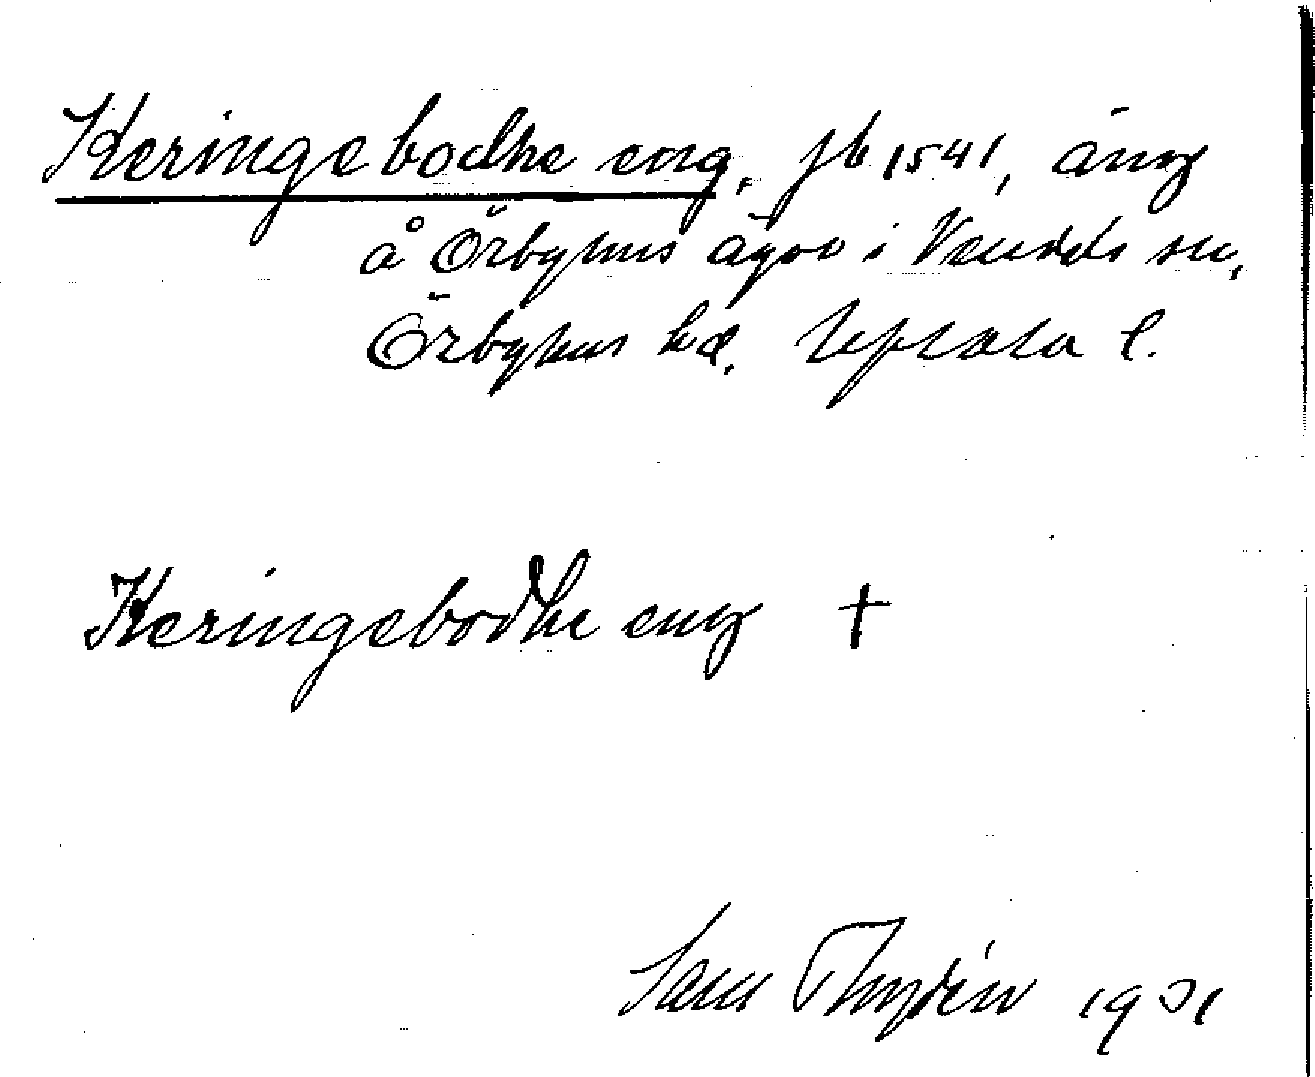 Keringebodhe eng, jb 1541, äng
å Örbyhus ägor i Vendels sn,
Örbyhus hd, Uppsala l.
Keringebodhe eng †
Sam 19